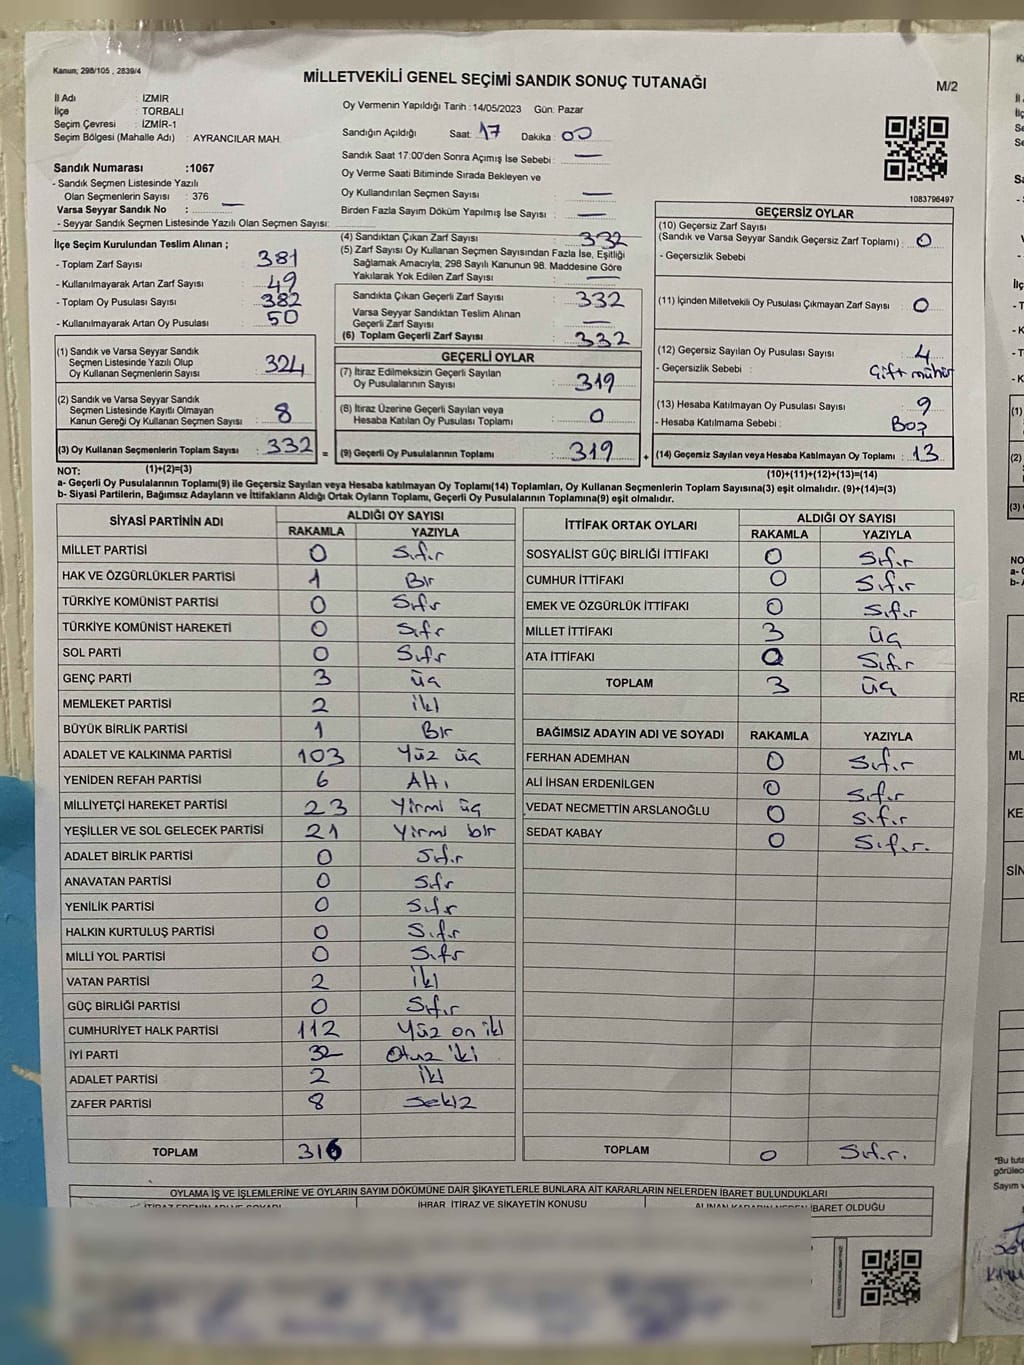 Kanun; 298/105 , 2839/4
MİLLETVEKİLİ GENEL SEÇİMİ SANDIK SONUÇ TUTANAĞI
M/2
İl Adı : İZMİR
İlçe : TORBALI
Seçim Çevresi : İZMİR-1
Seçim Bölgesi (Mahalle Adı) : AYRANCILAR MAH.
Sandık Numarası :1067
- Sandık Seçmen Listesinde Yazılı
Olan Seçmenlerin Sayısı : 376
Varsa Seyyar Sandık No : —
- Seyyar Sandık Seçmen Listesinde Yazılı Olan Seçmen Sayısı:
Oy Vermenin Yapıldığı Tarih :14/05/2023 Gün: Pazar
Sandığın Açıldığı Saat: 17 Dakika: 00
Sandık Saat 17:00'den Sonra Açımış İse Sebebi : —
Oy Verme Saati Bitiminde Sırada Bekleyen ve
Oy Kullandırılan Seçmen Sayısı —
Birden Fazla Sayım Döküm Yapılmış İse Sayısı : —
1083796497
İlçe Seçim Kurulundan Teslim Alınan ;
- Toplam Zarf Sayısı : 381
- Kullanılmayarak Artan Zarf Sayısı : 49
- Toplam Oy Pusulası Sayısı : 382
- Kullanılmayarak Artan Oy Pusulası : 50
(1) Sandık ve Varsa Seyyar Sandık
Seçmen Listesinde Yazılı Olup
Oy Kullanan Seçmenlerin Sayısı : 324
(2) Sandık ve Varsa Seyyar Sandık
Seçmen Listesinde Kayıtlı Olmayan
Kanun Gereği Oy Kullanan Seçmen Sayısı : 8
(3) Oy Kullanan Seçmenlerin Toplam Sayısı : 332 =
(4) Sandıktan Çıkan Zarf Sayısı : 332
(5) Zarf Sayısı Oy Kullanan Seçmen Sayısından Fazla İse, Eşitliği
Sağlamak Amacıyla, 298 Sayılı Kanunun 98. Maddesine Göre
Yakılarak Yok Edilen Zarf Sayısı : —
Sandıkta Çıkan Geçerli Zarf Sayısı : 332
Varsa Seyyar Sandıktan Teslim Alınan
Geçerli Zarf Sayısı : —
(6) Toplam Geçerli Zarf Sayısı : 332
GEÇERLİ OYLAR
(7) İtiraz Edilmeksizin Geçerli Sayılan
Oy Pusulalarının Sayısı : 319
(8) İtiraz Üzerine Geçerli Sayılan veya
Hesaba Katılan Oy Pusulası Toplamı : 0
(9) Geçerli Oy Pusulalarının Toplamı : 319 +
GEÇERSİZ OYLAR
(10) Geçersiz Zarf Sayısı
(Sandık ve Varsa Seyyar Sandık Geçersiz Zarf Toplamı) : 0
- Geçersizlik Sebebi
(11) İçinden Milletvekili Oy Pusulası Çıkmayan Zarf Sayısı : 0
(12) Geçersiz Sayılan Oy Pusulası Sayısı : 4
- Geçersizlik Sebebi : Çift mühür
(13) Hesaba Katılmayan Oy Pusulası Sayısı : 9
- Hesaba Katılmama Sebebi : Boş
(14) Geçersiz Sayılan veya Hesaba Katılmayan Oy Toplamı : 13
NOT: (1)+(2)=(3) (10)+(11)+(12)+(13)=(14)
a- Geçerli Oy Pusulalarının Toplamı(9) ile Geçersiz Sayılan veya Hesaba katılmayan Oy Toplamı(14) Toplamları, Oy Kullanan Seçmenlerin Toplam Sayısına(3) eşit olmalıdır. (9)+(14)=(3)
b- Siyasi Partilerin, Bağımsız Adayların ve İttifakların Aldığı Ortak Oyların Toplamı, Geçerli Oy Pusulalarının Toplamına(9) eşit olmalıdır.
SİYASİ PARTİNİN ADI ALDIĞI OY SAYISI
RAKAMLA YAZIYLA
MİLLET PARTİSİ 0 Sıfır
HAK VE ÖZGÜRLÜKLER PARTİSİ 1 Bir
TÜRKİYE KOMÜNİST PARTİSİ 0 Sıfır
TÜRKİYE KOMÜNİST HAREKETİ 0 Sıfır
SOL PARTİ 0 Sıfır
GENÇ PARTİ 3 üç
MEMLEKET PARTİSİ 2 iki
BÜYÜK BİRLİK PARTİSİ 1 Bir
ADALET VE KALKINMA PARTİSİ 103 Yüz üç
YENİDEN REFAH PARTİSİ 6 Altı
MİLLİYETÇİ HAREKET PARTİSİ 23 Yirmi üç
YEŞİLLER VE SOL GELECEK PARTİSİ 21 Yirmi bir
ADALET BİRLİK PARTİSİ 0 Sıfır
ANAVATAN PARTİSİ 0 Sıfır
YENİLİK PARTİSİ 0 Sıfır
HALKIN KURTULUŞ PARTİSİ 0 Sıfır
MİLLİ YOL PARTİSİ 0 Sıfır
VATAN PARTİSİ 2 iki
GÜÇ BİRLİĞİ PARTİSİ 0 Sıfır
CUMHURİYET HALK PARTİSİ 112 Yüz on iki
İYİ PARTİ 32 Otuz iki
ADALET PARTİSİ 2 iki
ZAFER PARTİSİ 8 Sekiz
TOPLAM 316
İTTİFAK ORTAK OYLARI ALDIĞI OY SAYISI
RAKAMLA YAZIYLA
SOSYALİST GÜÇ BİRLİĞİ İTTİFAKI 0 Sıfır
CUMHUR İTTİFAKI 0 Sıfır
EMEK VE ÖZGÜRLÜK İTTİFAKI 0 Sıfır
MİLLET İTTİFAKI 3 üç
ATA İTTİFAKI 0 Sıfır
TOPLAM 3 üç
BAĞIMSIZ ADAYIN ADI VE SOYADI RAKAMLA YAZIYLA
FERHAN ADEMHAN 0 Sıfır
ALİ İHSAN ERDENİLGEN 0 Sıfır
VEDAT NECMETTİN ARSLANOĞLU 0 Sıfır
SEDAT KABAY 0 Sıfır.
TOPLAM 0 Sıfır.
OYLAMA İŞ VE İŞLEMLERİNE VE OYLARIN SAYIM DÖKÜMÜNE DAİR ŞİKAYETLERLE BUNLARA AİT KARARLARIN NELERDEN İBARET BULUNDUKLARI
İHBAR, İTİRAZ VE ŞİKAYETİN KONUSU
İBARET OLDUĞU